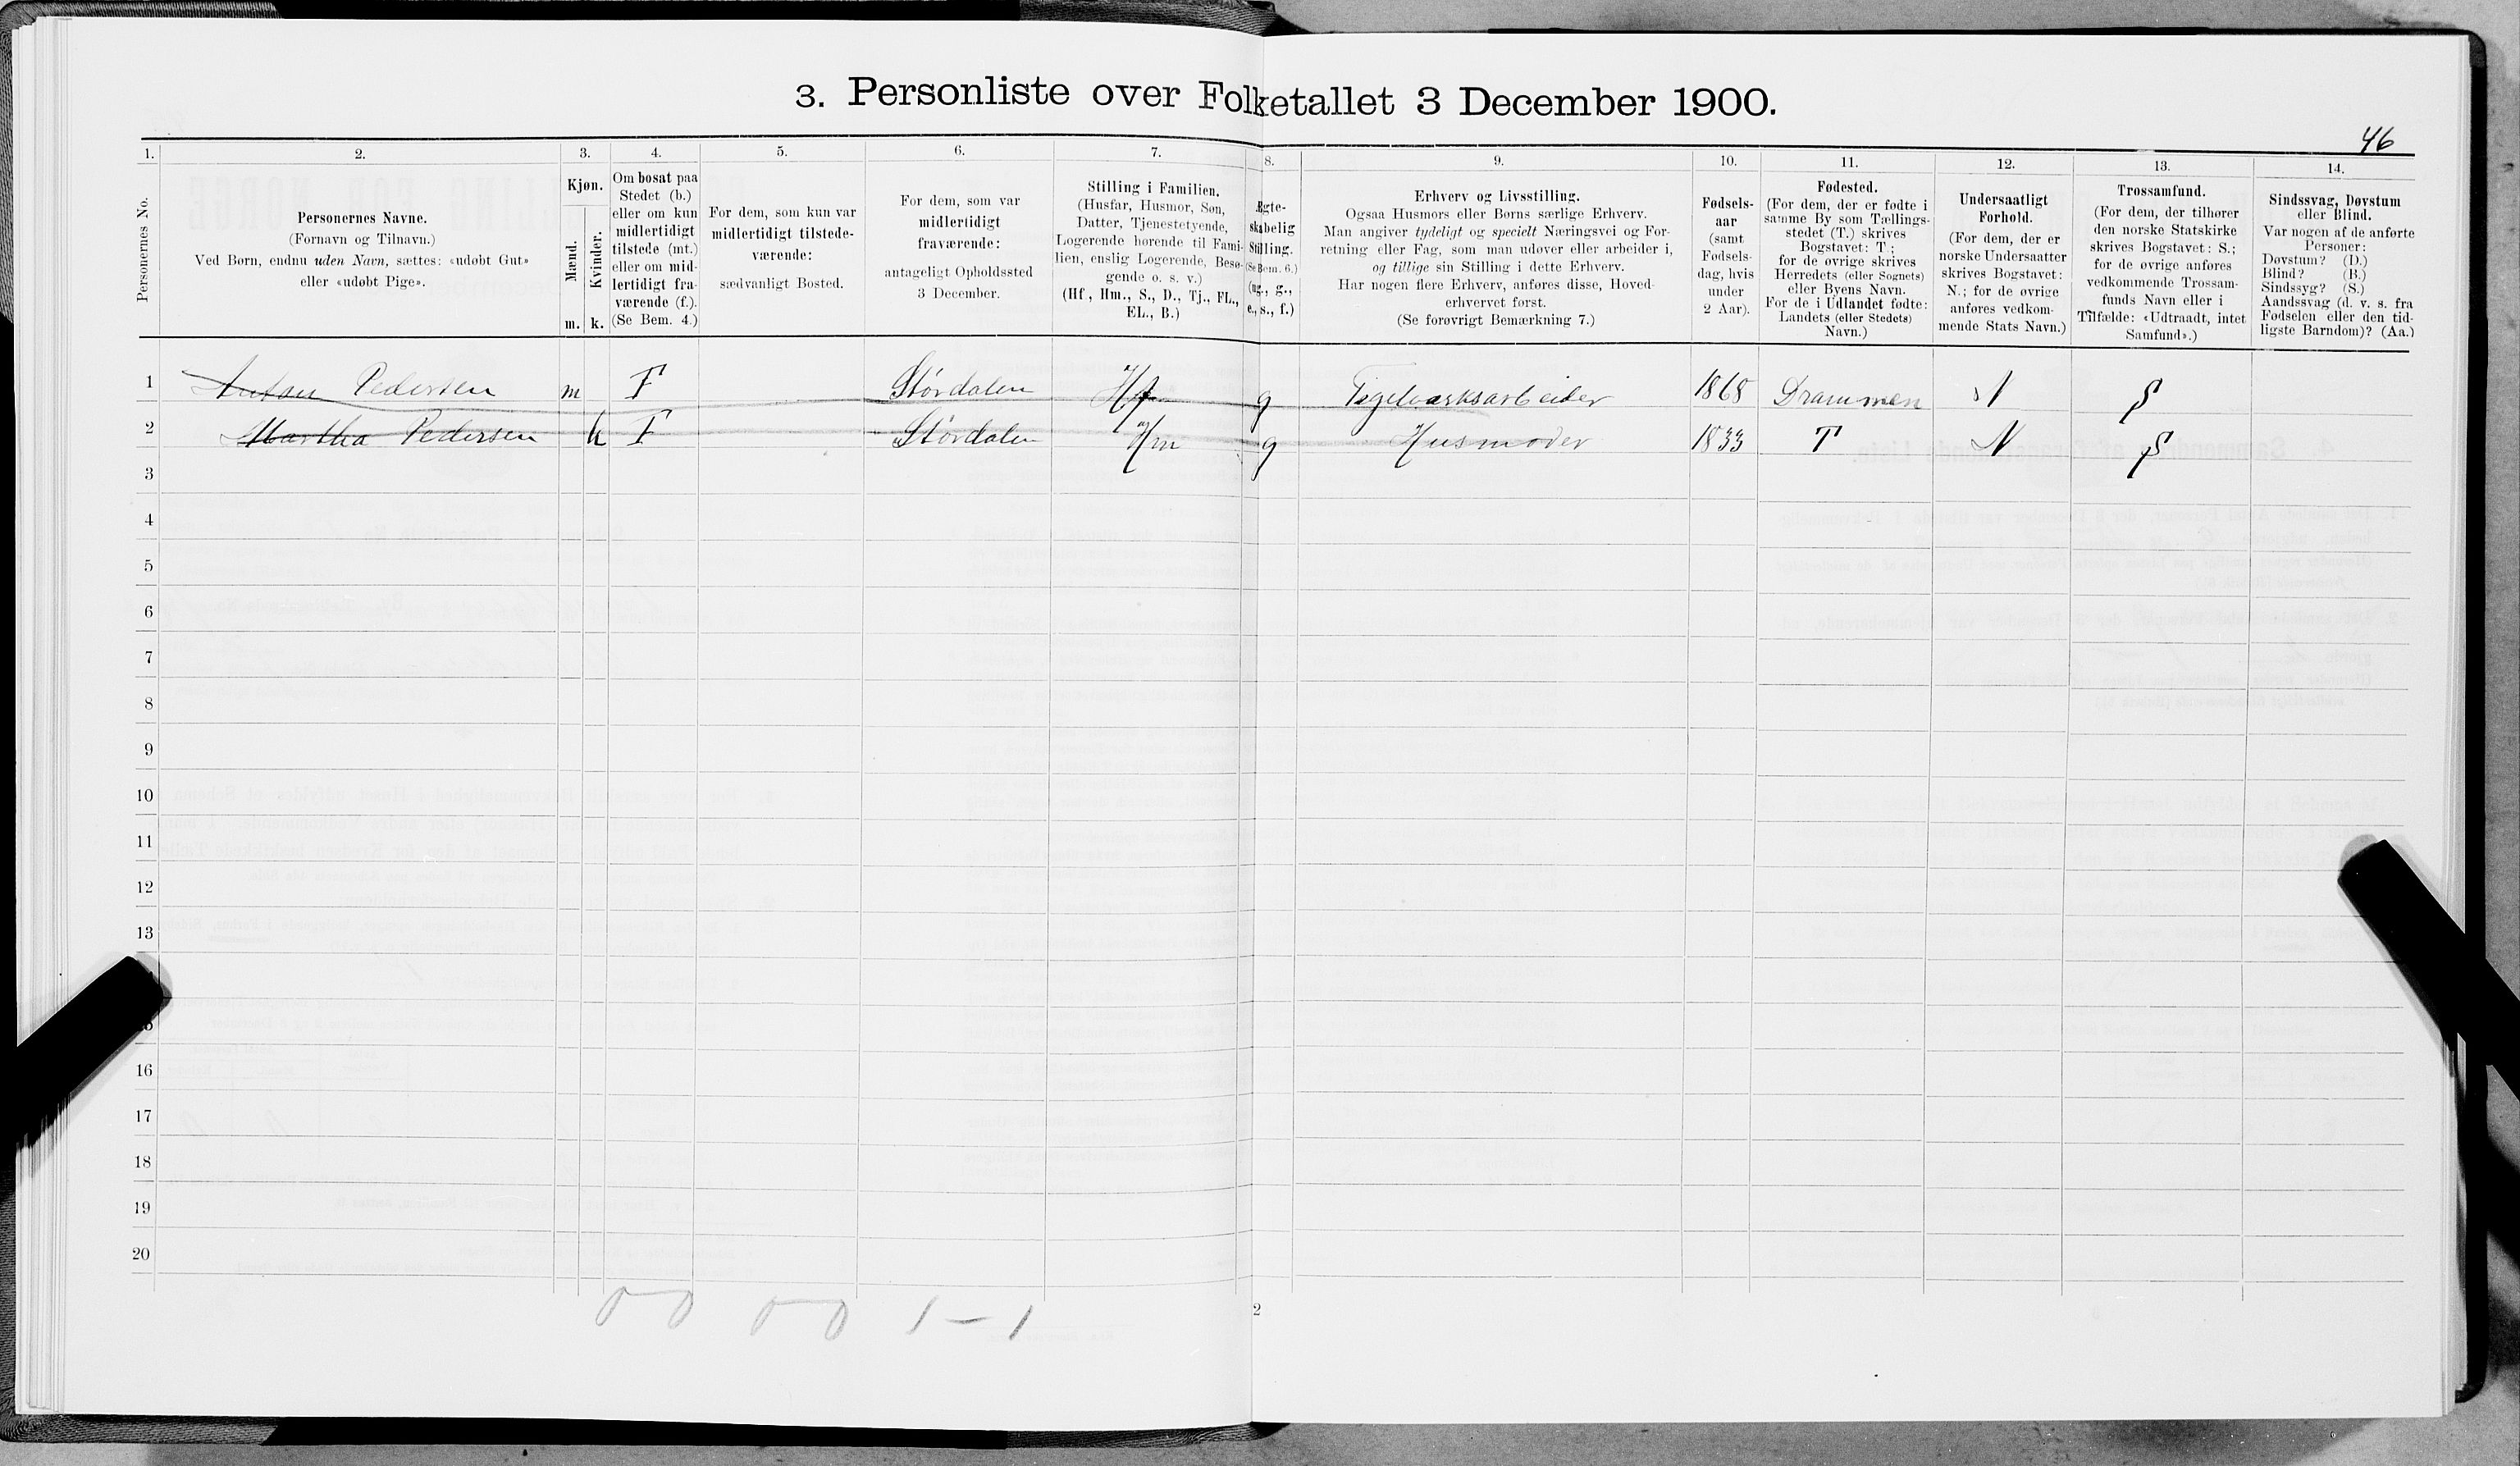 3. Personliste over Folketallet 3 December 1900.
46
1. 2. 3. 4. 5. 6. 7. 8. 9. 10. 11. 12. 13. 14.
Personernes No.
Personernes Navne.
(Fornavn og Tilnavn.)
Ved Børn, endnu uden Navn, sættes: «udøbt Gut»
eller «udøbt Pige».
Kjøn.
Mænd.
Kvinder.
m. k.
Om bosat paa
Stedet (b.)
eller om kun
midlertidigt
tilstede (mt.)
eller om mid-
lertidigt fra-
værende (f.).
(Se Bem. 4.)
For dem, som kun var
midlertidigt tilstede-
værende:
sædvanligt Bosted.
For dem, som var
midlertidigt
fraværende:
antageligt Opholdssted
3 December.
Stilling i Familien.
(Husfar, Husmor, Søn,
Datter, Tjenestetyende,
Logerende hørende til Fami-
lien, enslig Logerende, Besø-
gende o. s. v.)
(Hf., Hm., S., D., Tj., FL.,
EL., B.)
Ægte-
skabelig
Stilling.
(Se Bem. 6.)
(ug., g.,
e., s., f.)
Erhverv og Livsstilling.
Ogsaa Husmors eller Børns særlige Erhverv.
Man angiver tydeligt og specielt Næringsvei og For-
retning eller Fag, som man udøver eller arbeider i,
og tillige sin Stilling i dette Erhverv.
Har nogen flere Erhverv, anføres disse, Hoved-
erhvervet først.
(Se forøvrigt Bemærkning 7.)
Fødsels-
aar
(samt
Fødsels-
dag, hvis
under
2 Aar).
Fødested.
(For dem, der er fødte i
samme By som Tællings-
stedet (T.) skrives
Bogstavet: T.;
for de øvrige skrives
Herredets (eller Sognets)
eller Byens Navn.
For de i Udlandet fødte:
Landets (eller Stedets)
Navn.)
Undersaatligt
Forhold.
(For dem, der er
norske Undersaatter
skrives Bogstavet:
N.; for de øvrige
anføres vedkom-
mende Stats Navn.)
Trossamfund.
(For dem, der tilhører
den norske Statskirke
skrives Bogstavet: S.;
for de øvrige anføres
vedkommende Trossam-
funds Navn eller i
Tilfælde: «Udtraadt, intet
Samfund».)
Sindssvag, Døvstum
eller Blind.
Var nogen af de anførte
Personer:
Døvstum? (D.)
Blind? (B.)
Sindssyg? (S.)
Aandssvag (d. v. s. fra
Fødselen eller den tid-
ligste Barndom)? (Aa.)
1 Anton Pedersen m F Størdalen Hf g Tegelværksarbeider 1868 Drammen N S
2 Martha Pedersen k F Størdalen Hm g Husmoder 1833 T N S
3
4
5
6
7
8
9
10
11
12
13
16
17
18
19
20
0 0 0 0 1 – 1
2